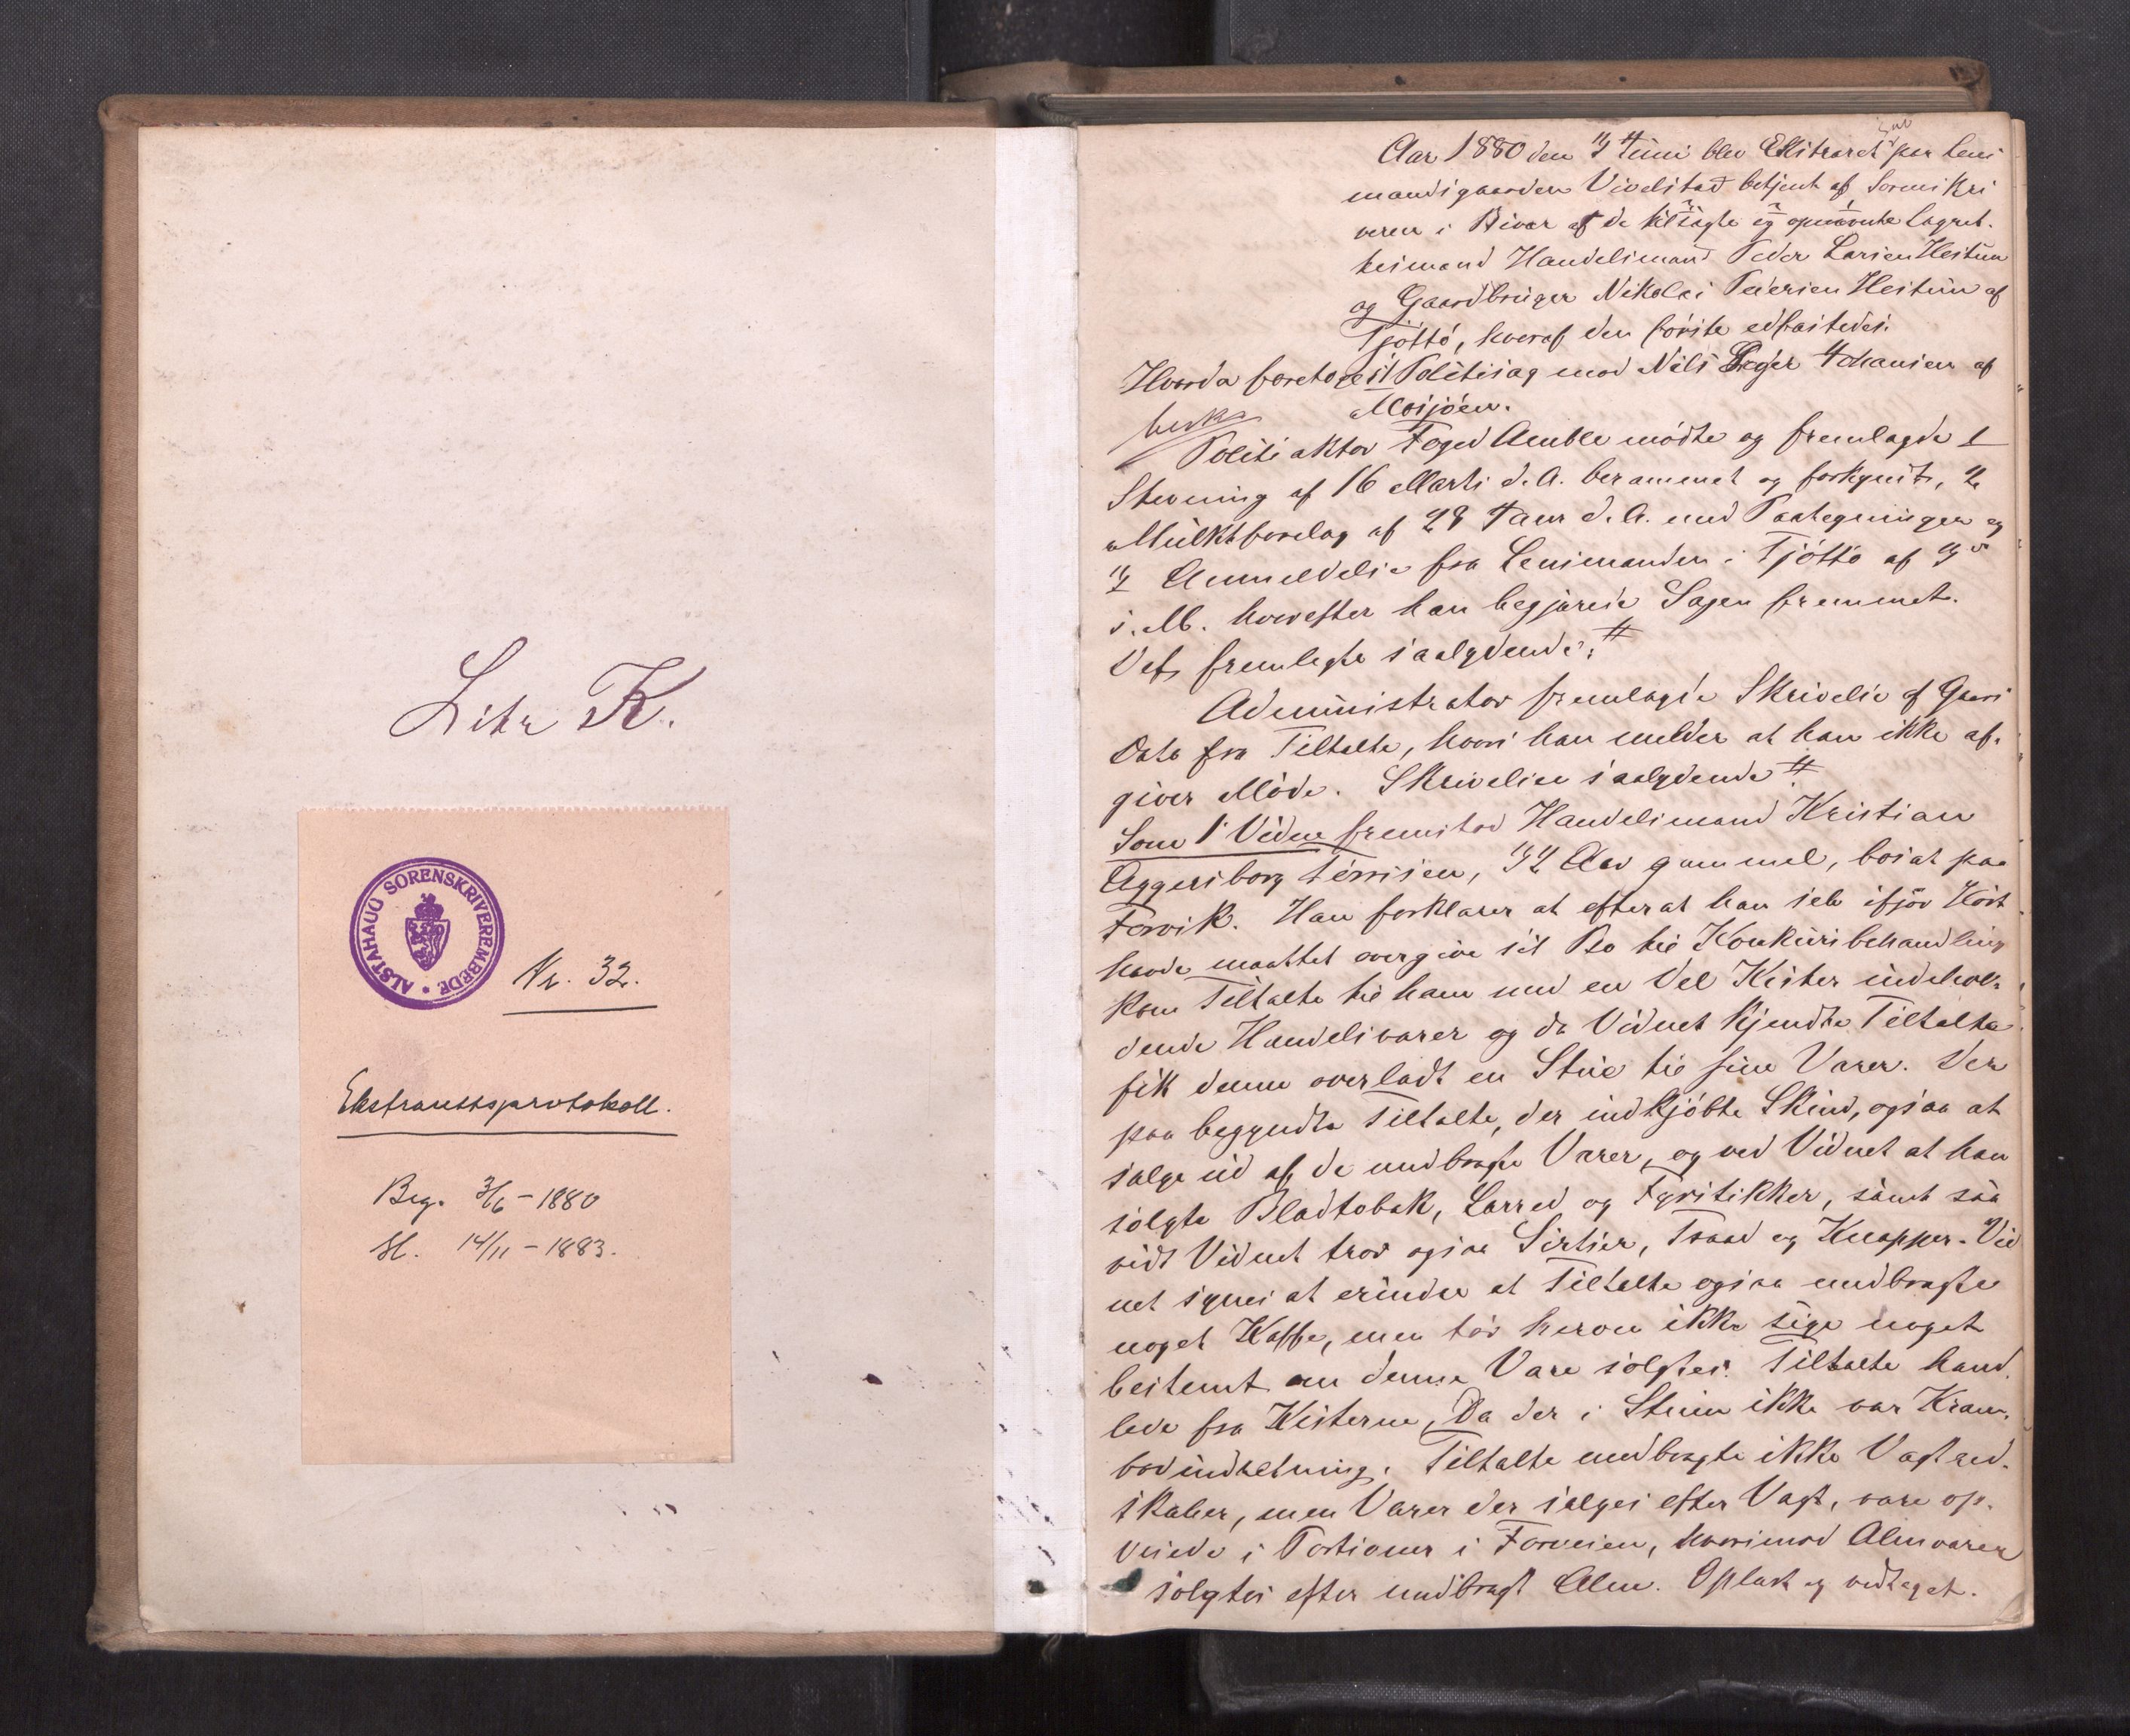 Litr K.
ALSTAHAUG SORENSKRIVEREMBEDE
Nr. 32.
Ekstrarettsprotokoll.
Beg. 3/6 - 1880
Sl. 14/11 - 1883.
Aar 1880 den 3 Juni blev Ekstraret sat paa Lens
mandsgaarden Vivelstad betjent af Sorenskri
veren i Bivær af de tilsagte og opnævnte Lagret-
tesmænd Handelsmand Peder Larsen Hestun
og Gaardbruger Nikolai Pedersen Hestun af
Tjøttø, hvoraf den første edfæstedes.
Hvorda foretoges Politisag mod Nils Jæger Johansen af
Mosjøen.
Politiaktor Foged Amble mødte og fremlagde 1
Stevning af 16 Marts d. A. berammet og forkyndt, 2
Mulktforelæg af 28 Janr d. A. med Paategninger og
3 Anmeldelse fra Lensmanden i Tjøttø af
s. M. hvorefter han begjærede Sagen fremmet.
Det fremlagte saalydende: #
Administrator fremlagde Skrivelse af Gaars
Dato fra Tiltalte, hvori han melder at han ikke af-
giver Møde. Skrivelsen saalydende #
Som 1 Vidne fremstod Handelsmand Kristian
Aggersborg 32 Aar gammel, bosat paa
Forvik. Han forklarer at efterat han selv ifjor Høst
havde maattet overgive sit Bo til Konkursbehandling
kom Tiltalte til ham med en Del Kister indehol-
dende Handelsvarer og da Vidnet kjendte Tiltalte
fik denne overladt en Stue til sine Varer. Der
paa begyndte Tiltalte, der indkjøbte Skind, ogsaa at
sælge ud af de medbragte Varer, og ved Vidnet at han
solgte Bladtobak, Lærred og Fyrstikker, samt saa
vidt Vidnet tror ogsaa Sirtser, Traad og Knapper. Vid
net synes at erindre at Tiltalte ogsaa medbragte
noget Kaffe, men tør herom ikke sige noget
bestemt om denne Vare solgtes. Tiltalte hand-
lede fra Kisterne, Da der i Stuen ikke var Kram-
bodindretning. Tiltalte medbragte ikke Vægtred-
skaber, men Varer der sælges efter Vægt, vare op-
veiede i Portioner i Forveien, hvorimod Alenvarer
solgtes efter medbragt Alen. Oplæst og vedtaget.